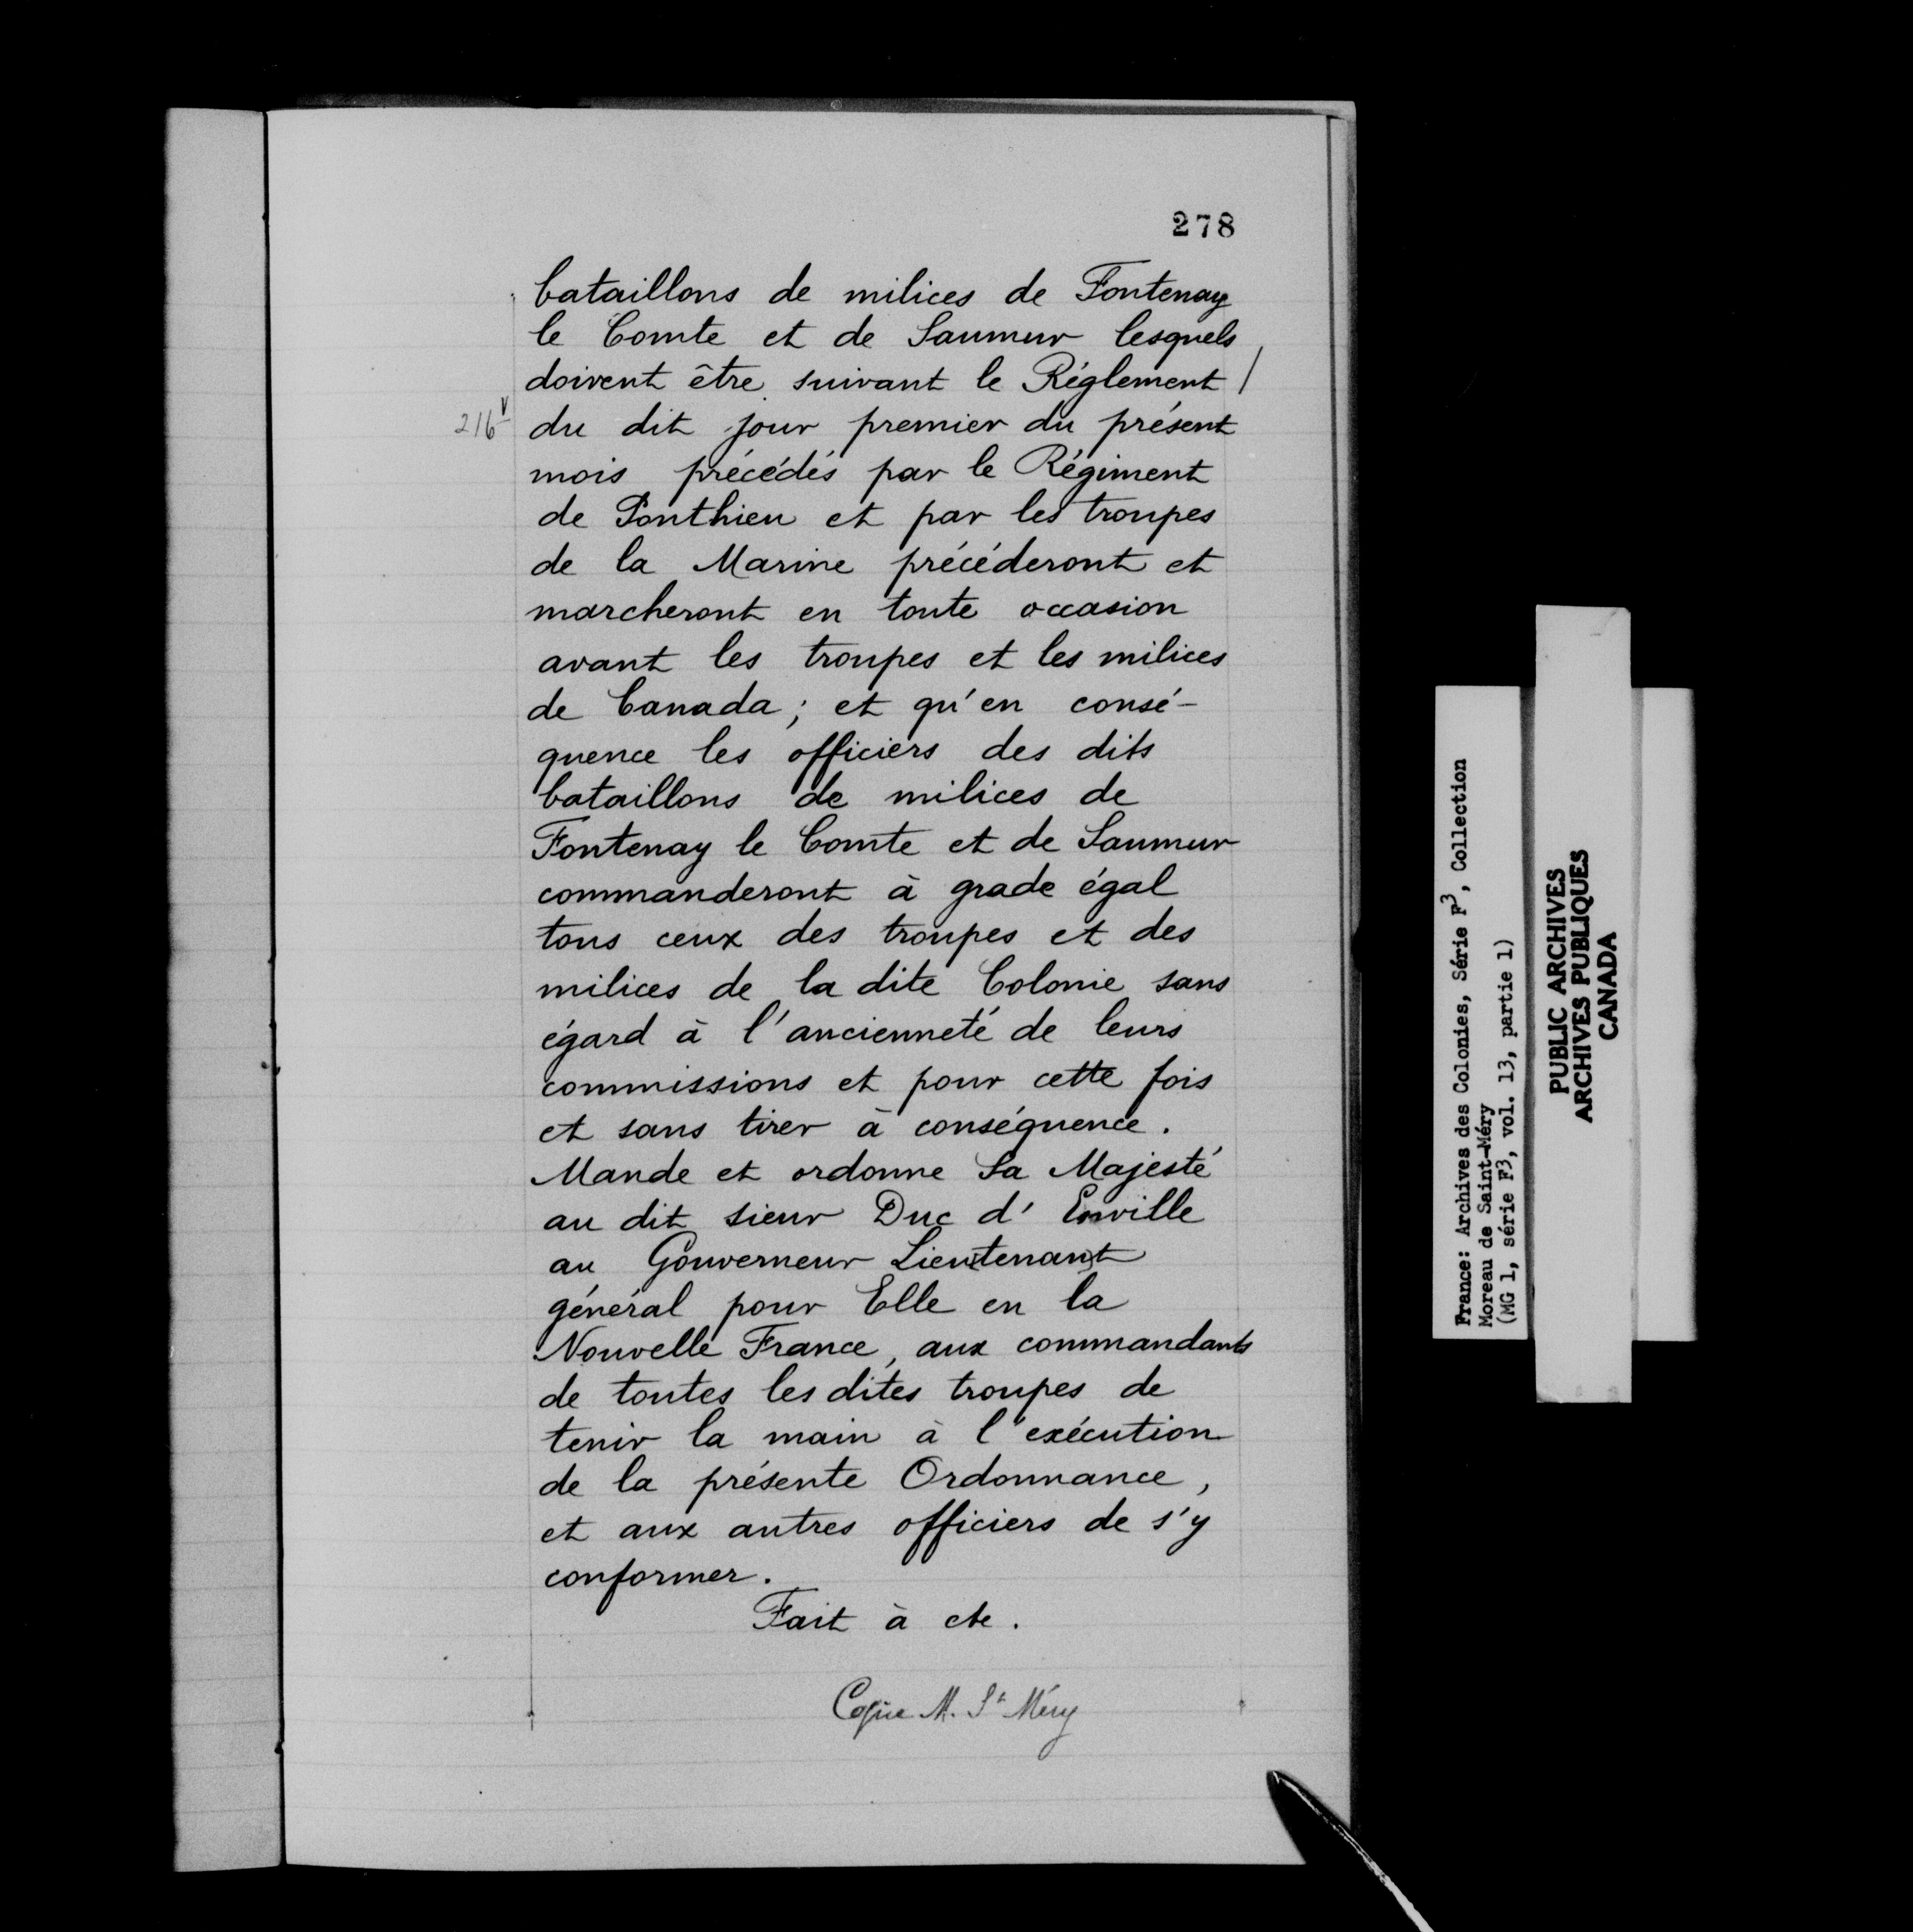 278
bataillons de milices de Fontenay
le Comte et de Saumur lesquels
doivent être suivant le Réglement /
216v du dit jour premier du présent
mois précédés par le Régiment
de Ponthieu et par les troupes
de la Marine précéderont et
marcheront en toute occasion
avant les troupes et les milices
de Canada ; et qu'en consé-
quence les officiers des dits
bataillons de milices de
Fontenay le Comte et de Saumur
commanderont à grade égal
tous ceux des troupes et des
milices de la dite Colonie sans
égard à l'ancienneté de leurs
commissions et pour cette fois
et sans tirer à conséquence.
Mande et ordonne Sa Majesté
au dit sieur Duc d'Enville
au Gouverneur Lieutenant
général pour Elle en la
Nouvelle France, aux commandants
de toutes les dites troupes de
tenir la main à l'exécution
de la présente Ordonnance,
et aux autres officiers de s'y
conformer.
Fait à etc.
Copie M. St Méry
France: Archives des Colonies, Série F3, Collection
Moreau de Saint-Méry
(MG 1, série F3, vol. 13, partie 1)
PUBLIC ARCHIVES
ARCHIVES PUBLIQUES
CANADA